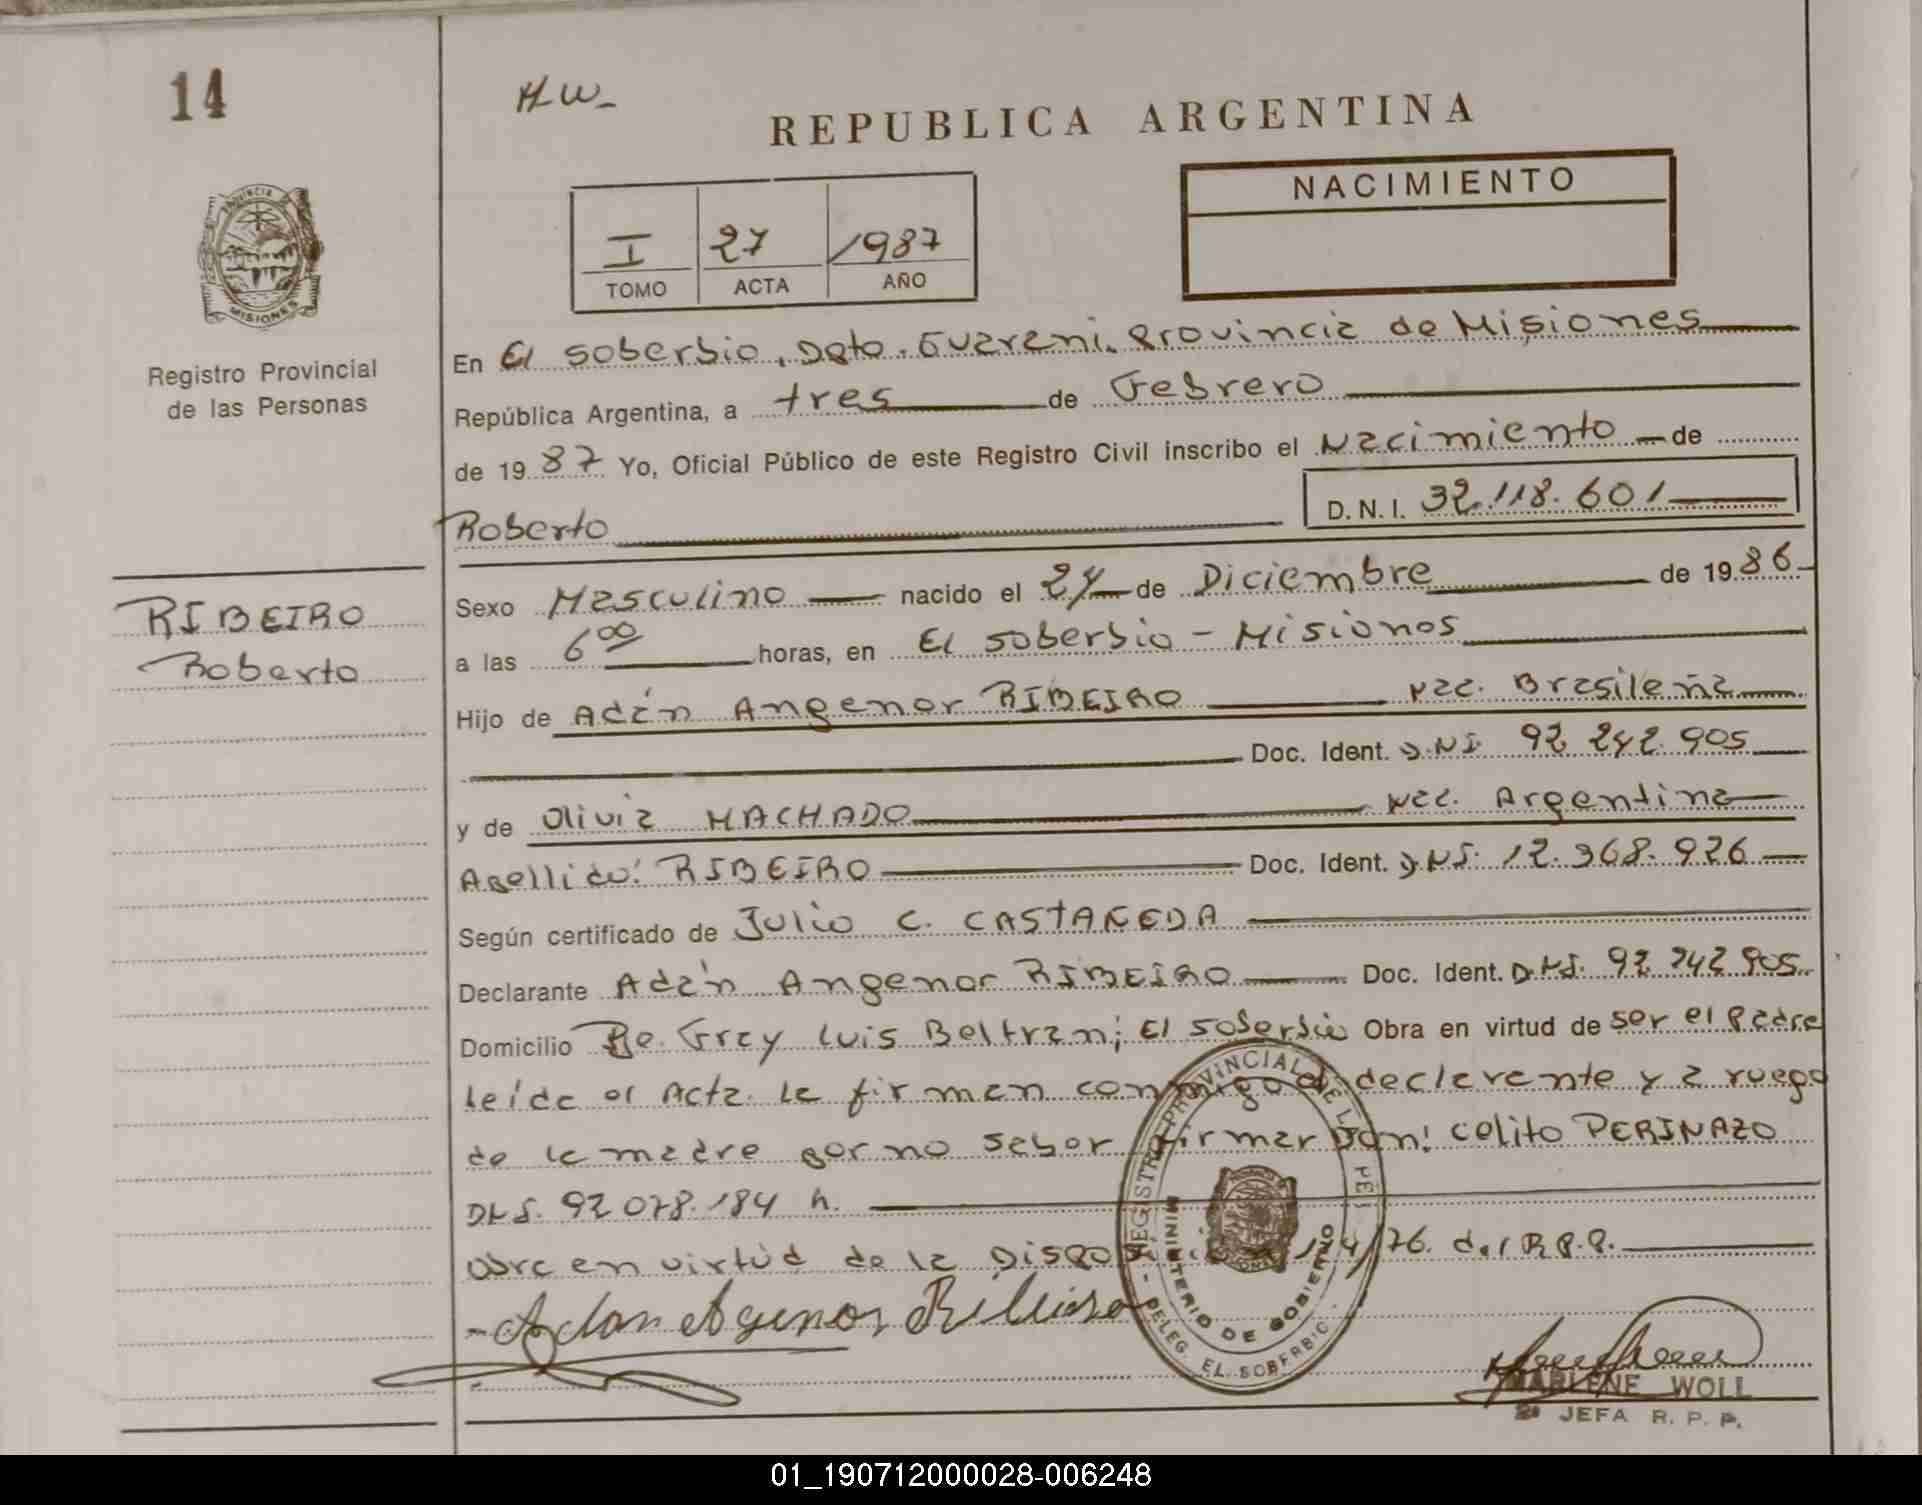 14
H.W-
REPUBLICA ARGENTINA
NACIMIENTO
I 27 1987
TOMO ACTA AÑO
PROVINCIA
MISIONES
Registro Provincial
de las Personas
RIBEIRO
Roberto
En El Soberbio, Dpto. Guarani. Provincia de Misiones
República Argentina, a tres de Febrero
de 19 87 Yo, Oficial Público de este Registro Civil inscribo el Nacimiento de
Roberto D.N.I. 32.118.601
Sexo Masculino nacido el 24 de Diciembre de 19 86
a las 6 00 horas, en El Soberbio - Misiones
Hijo de Adán Angenor RIBEIRO Nac. Brasileña
Doc. Ident. D.NI. 92 242.905
y de Olivia MACHADO Nac. Argentina
Apellido: RIBEIRO Doc. Ident. D.NI. 12.368.926
Según certificado de Julio C. CASTAÑEDA
Declarante Adán Angenor RIBEIRO Doc. Ident. D.NI. 92 242 905
Domicilio Fray Luis Beltran; El Soberbio Obra en virtud de ser el padre
leída el Acta la firman conmigo el declarante y a ruego
de la madre por no saber firmar Don: Celito PERINAZO
DNI. 92 078.184
Obra en virtud de la /76. del R.P.P.
Adan Agenor Ribeiro
REGISTRO PROVINCIAL DE LAS PE
MINISTERIO DE GOBIERNO
DELEG. EL SOBERBIO
MARLENE WOLL
2ª JEFA R. P. P.
01_190712000028-006248